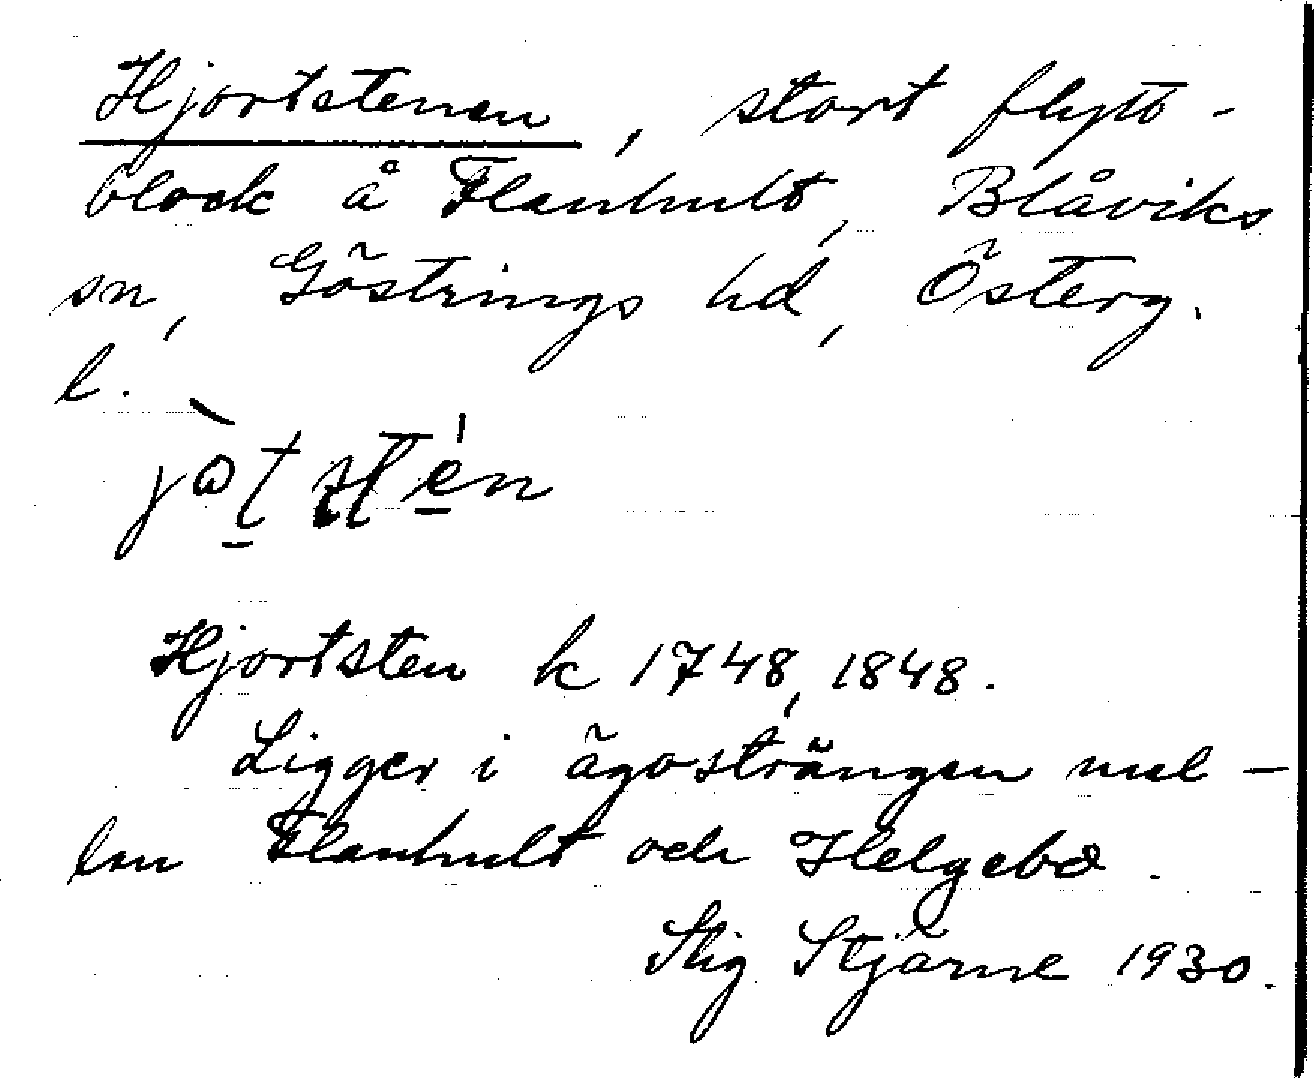 Hjortstenen, stort flytt-
block å Flanhult, Blåviks
sn, Göstrings hd, Österg.
l.
Hjortsten k 1748, 1848.
Ligger i ägosträngen mel-
lan Flanhult och Helgebo.
Stig Stjärne 1930.